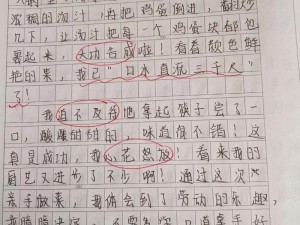 浓稠的汤汁，再把鸡蛋倒进，翻炒
几下，让汤汁把每一个鸡蛋块都包
裹起来，大功告成啦！看着颜色鲜
艳的菜，我已“口水直流三千尺”
了！
我迫不及待地拿起筷子尝了一
口，酸酸甜甜的，味道像不错！这
真是成功，我心花怒放！看来我的
厨艺又进步了不少啊！通过这次
亲手做菜，我体会到了劳动的乐趣，